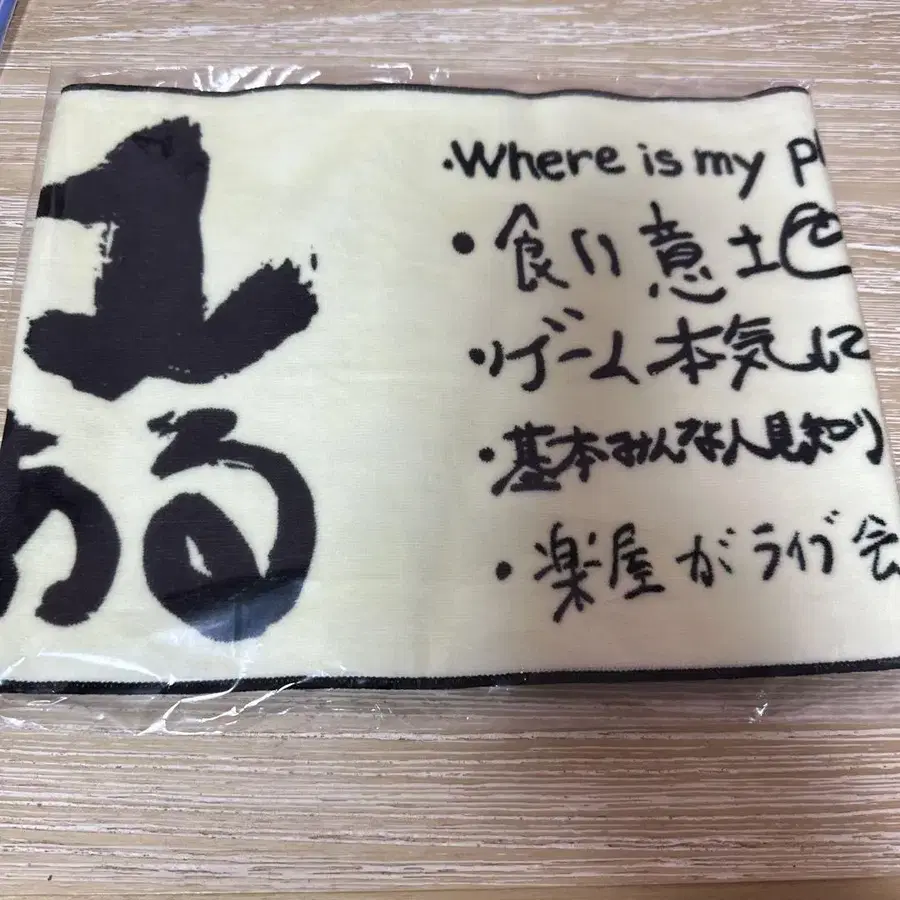 ある
・Where is my
・食い意地
・ゲーム本気に
・基本みんな人見知り
・楽屋がライブ会